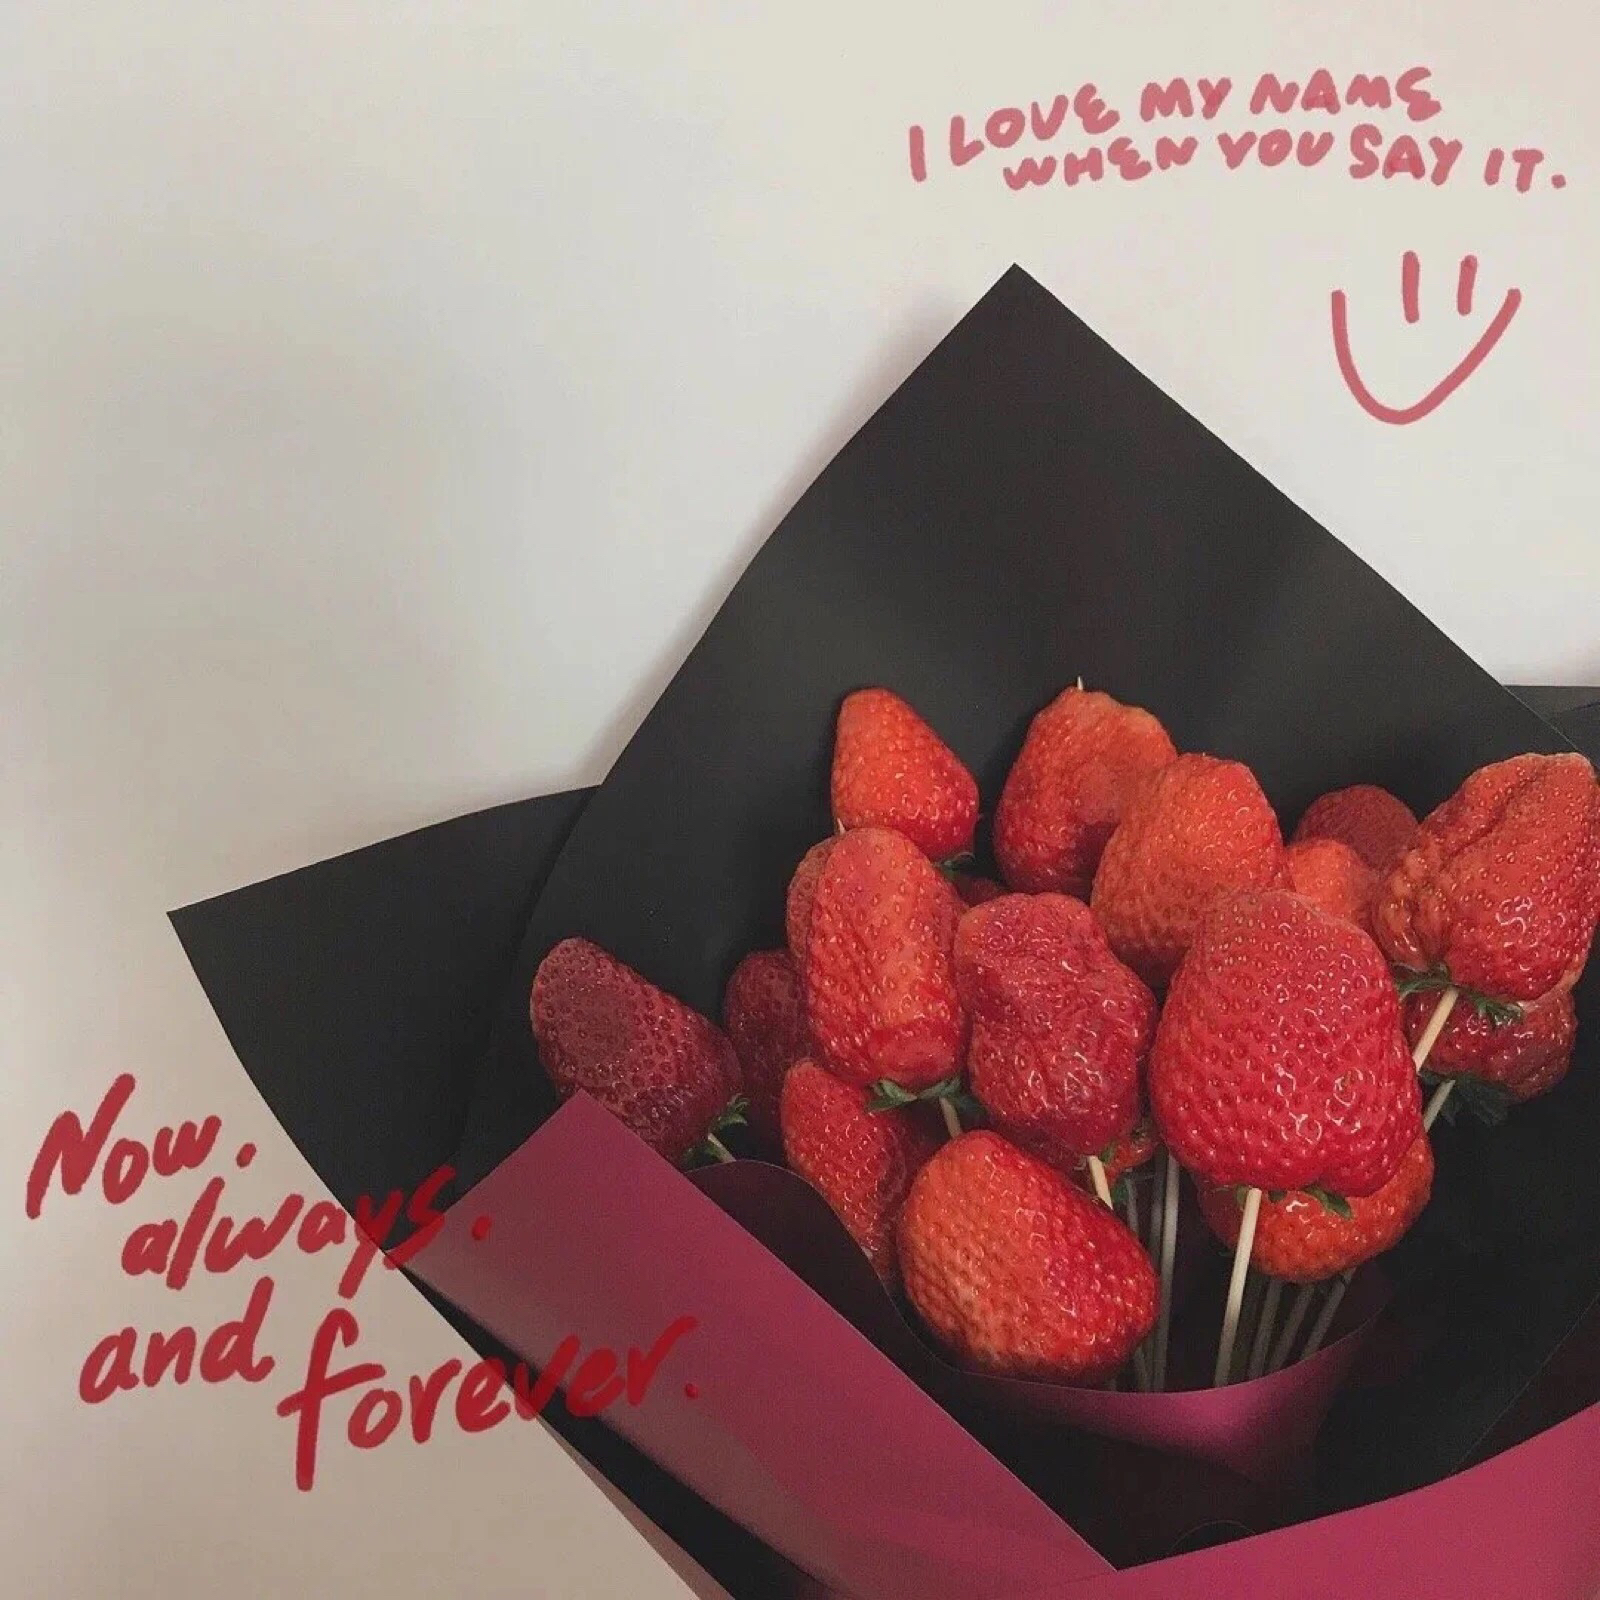 I LOVE MY NAME
WHEN YOU SAY IT.
Now.
always.
and
forever.